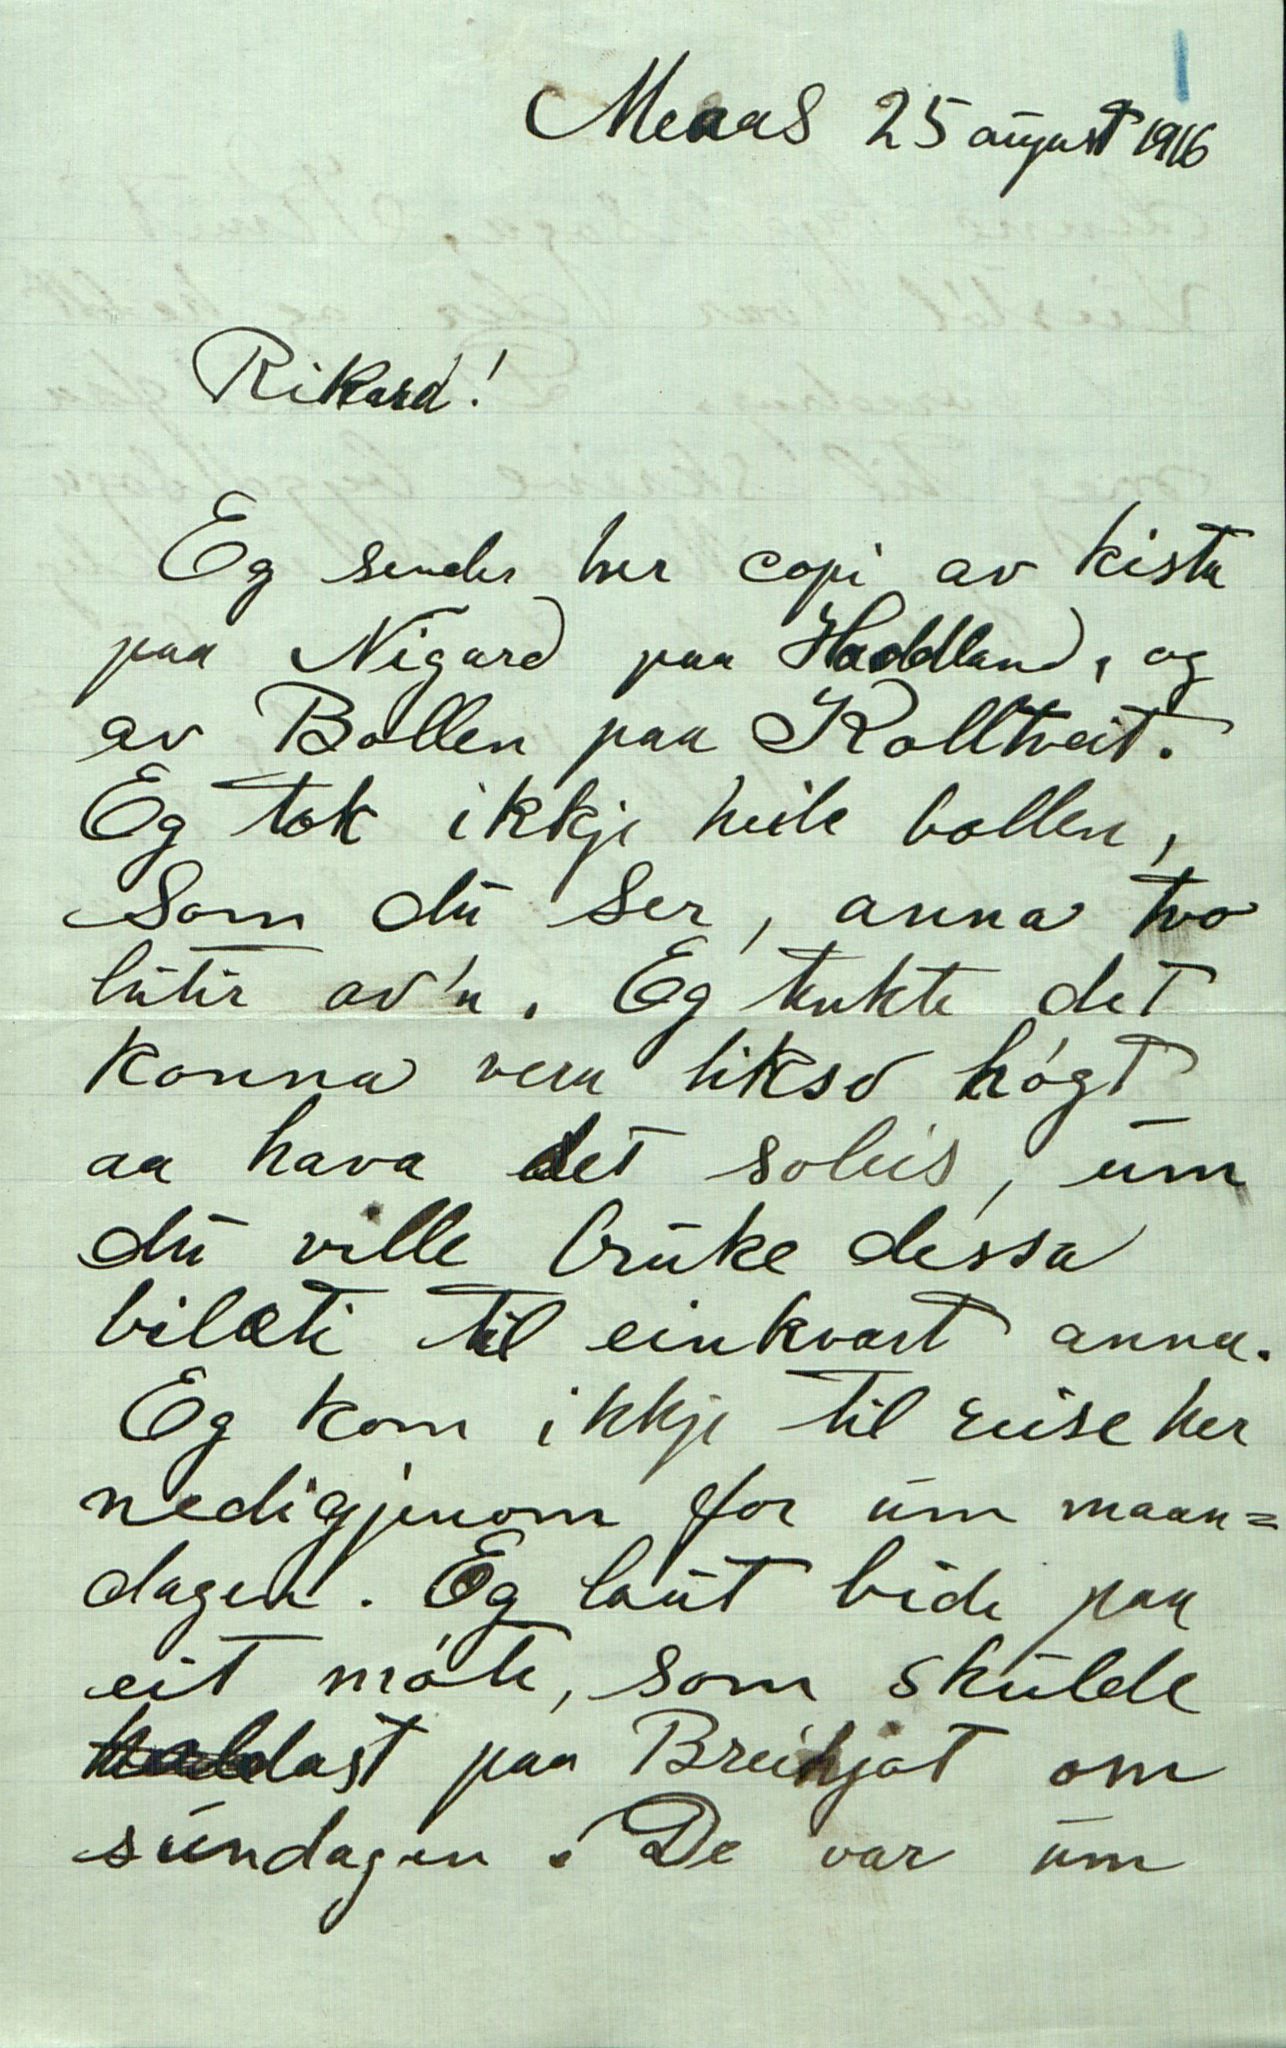 Meaas 25 august 1916
Rikard!
Eg sender her copi av kista
paa Nigard paa Haddland, og
av Bollen paa Kolltveit.
Eg tok ikkje heile bollen,
som du ser, anna two
lutir av'n. Eg tenkte det
konna vera likso høgt
aa hava det soleis, um
du ville bruke dessa
bilæti til einkvart anna.
Eg kom ikkje til reise her
nedigjenom for um maan=
dagen. Eg laut bide paa
eit møte, som skulde
haldast paa om
sundagen. De var um